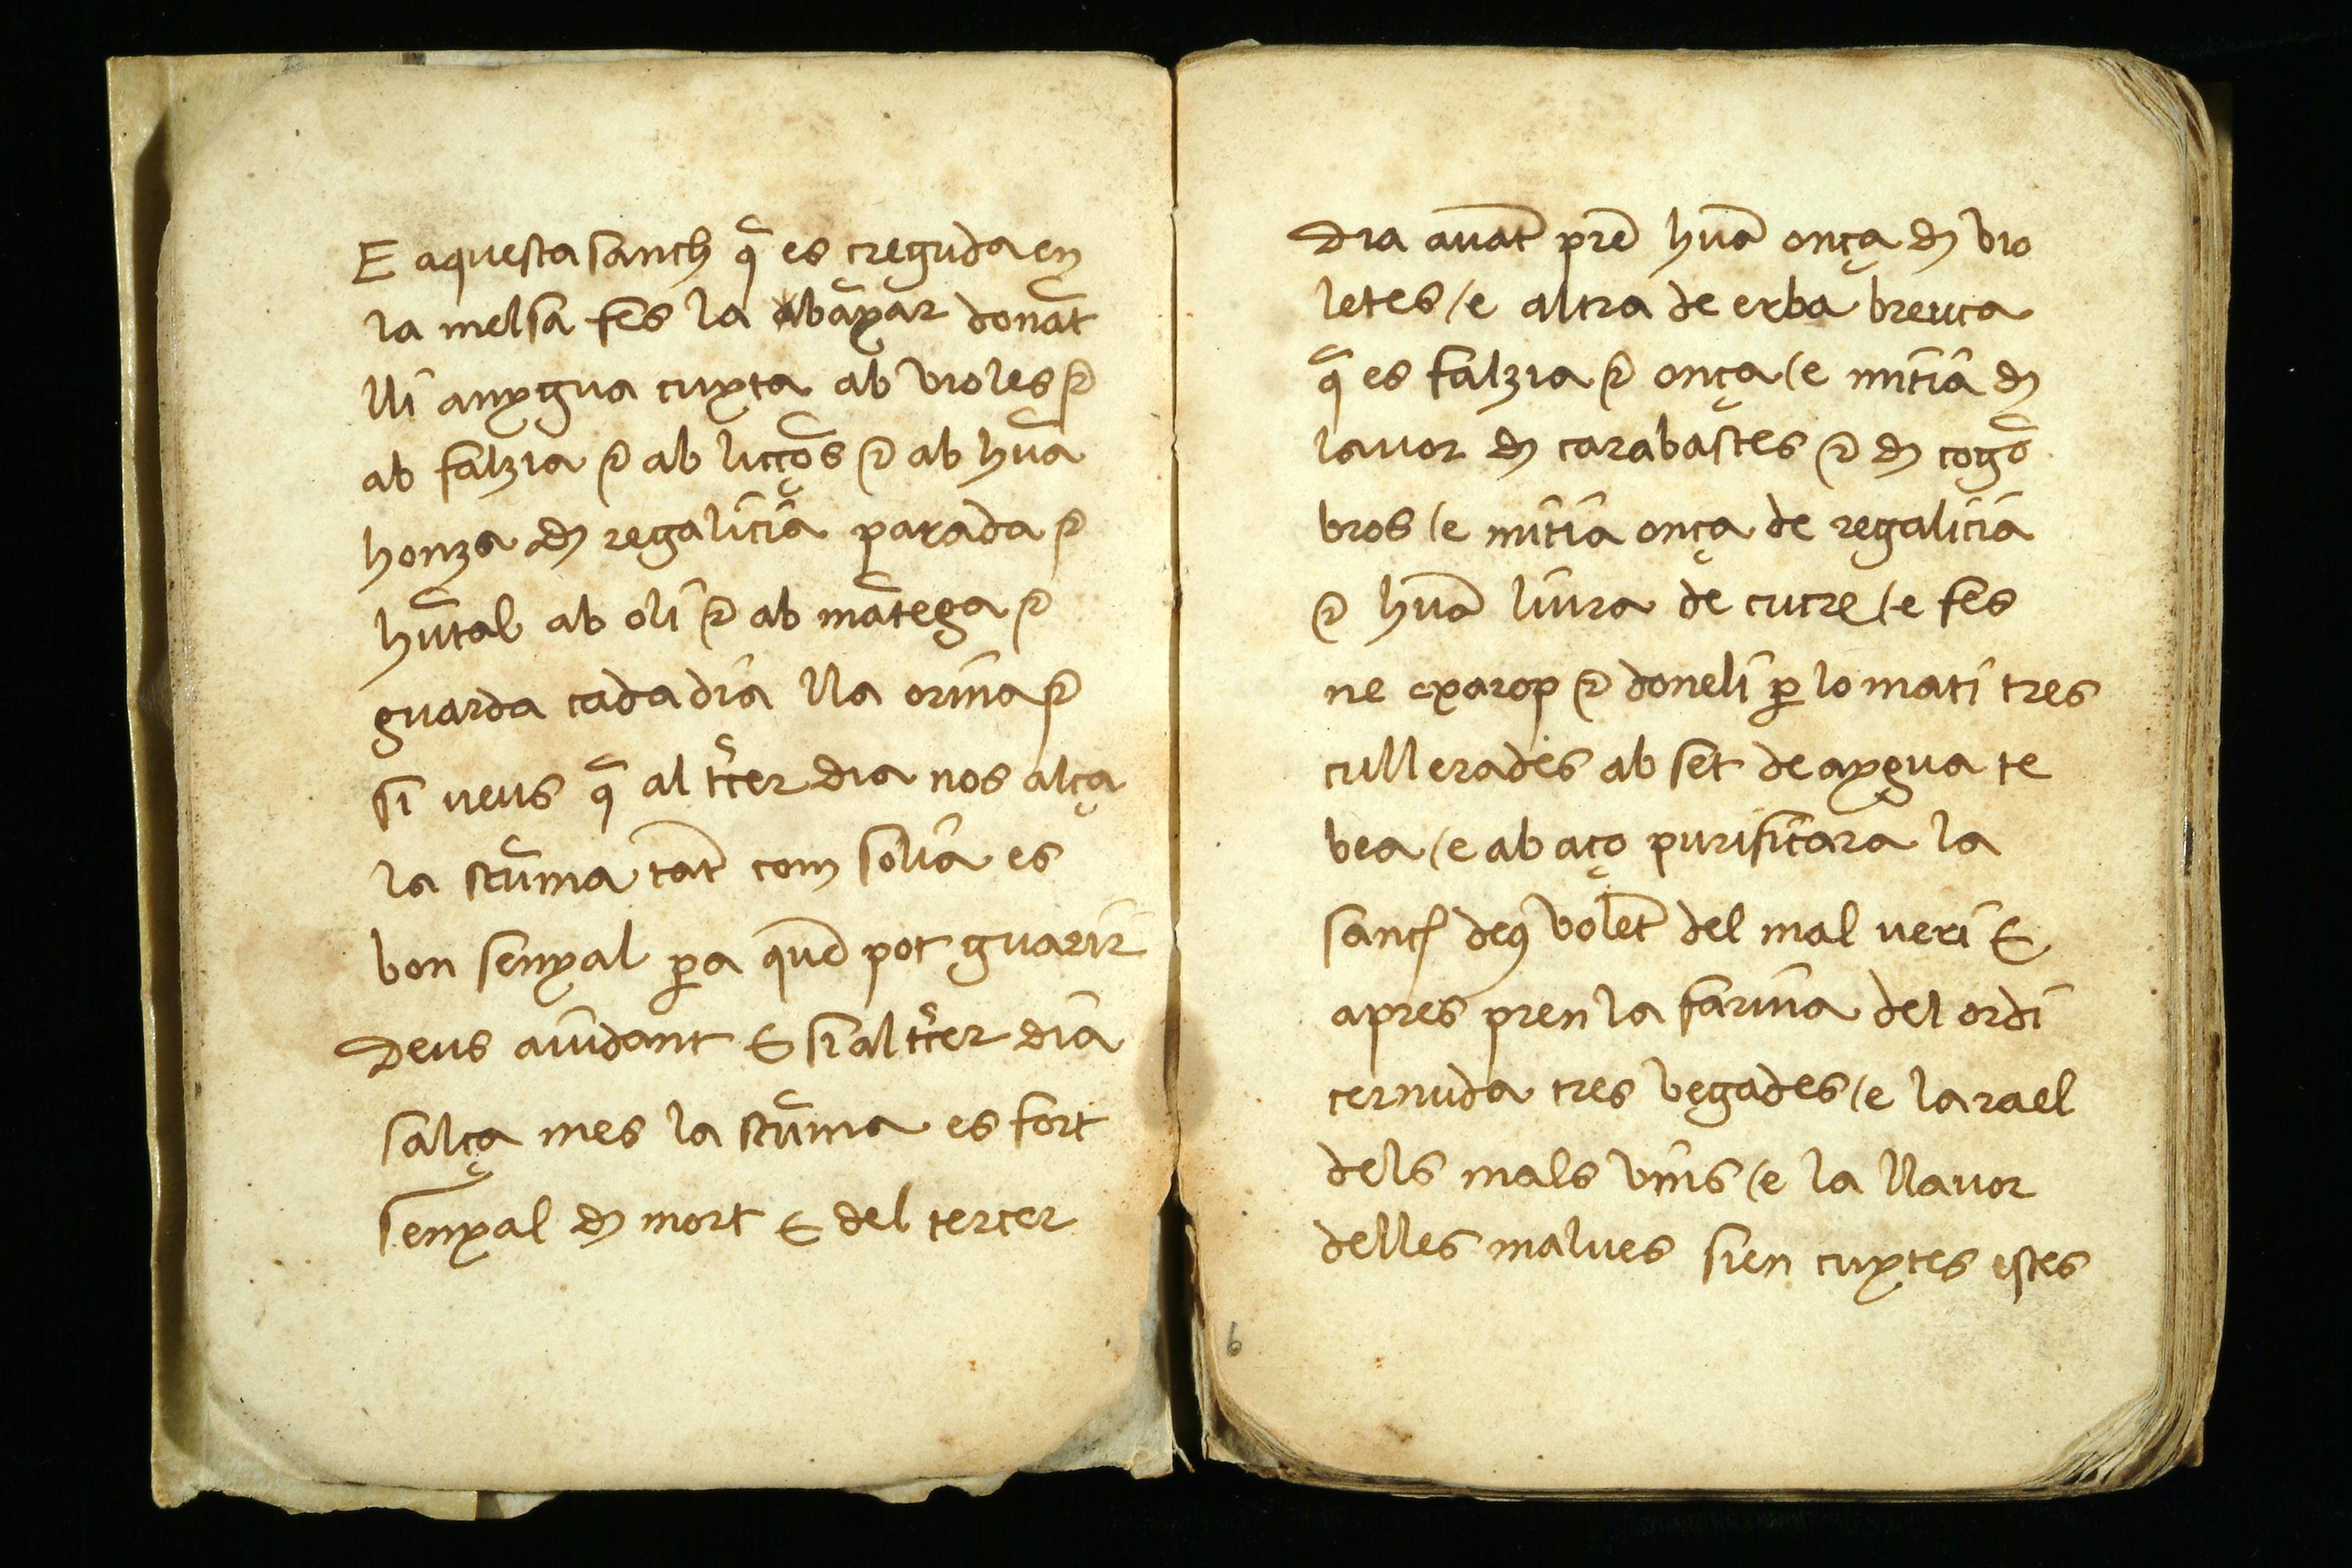 E aquesta sanch q̄ es creguda en
la melsa fes la abãxar donãt
lli anygua cuyta ab violes ⁊
ab falzia ⁊ ab liccõs ⁊ ab huã
honza d̶ regalicia parada ⁊
hũtal ab oli ⁊ ab mãtega ⁊
guarda cada dia lla orina ⁊
si veus q̄ al tr̃cer dia nos alça
la scũma tãt com solia es
bon senyal ꝑa que pot guarir
Deus aiudant E si al tr̃cer dia
salça mes la scũma es fort
senyal d̶ mort E del tercer
dia auãt prẽ huã onça d̶ vio
letes /e altra de erba breuca
q̄ es falzia ⁊ onça /e mitia d̶
lauor d̶ carabastes ⁊ d̶ cogõ
bros /e mitia onça de regalicia
⁊ huã liura de cucre /e fes
ne exarop ⁊ doneli ꝑ lo mati tres
cullerades ab set de aygua te
bea /e ab aço purificara la
sanch deꝰ volẽt del mal veri E
apres pren la farina del ordi
cernuda tres vegades /e la rael
dels mals vins /e la llavor
delles malues sien cuytes estes
6